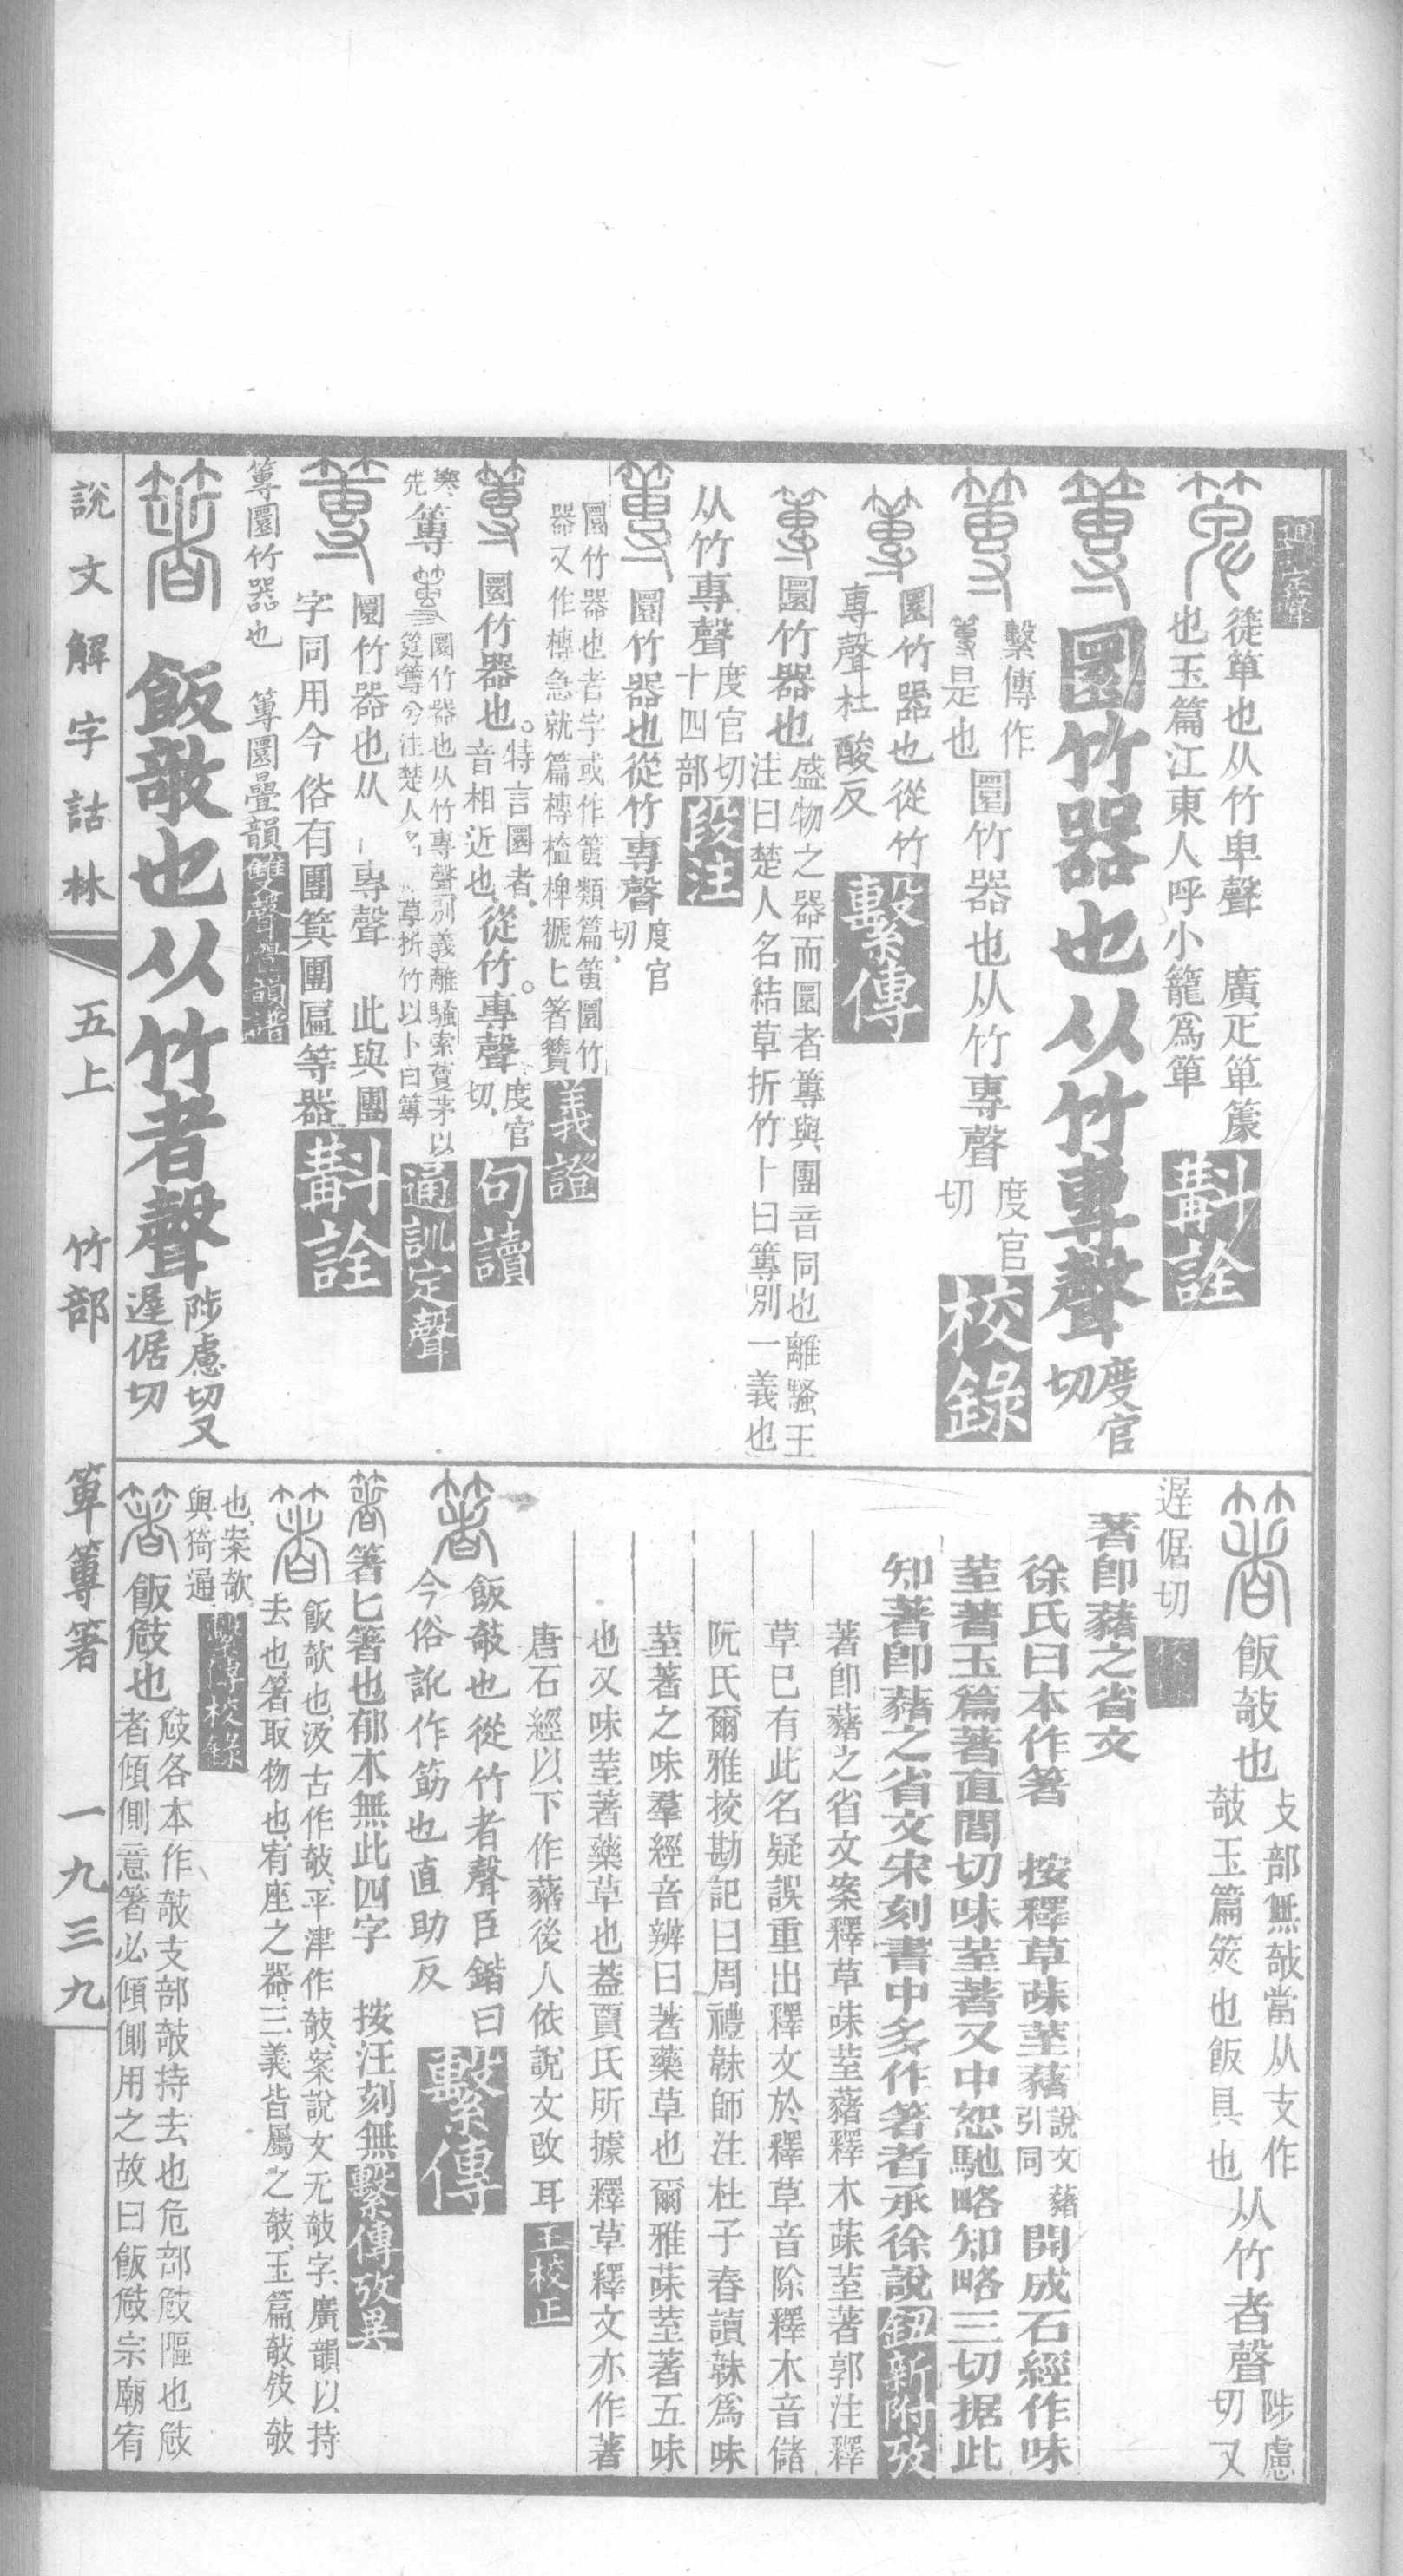 通訓定聲
簁箄也从竹卑聲　廣疋箄簏
也玉篇江東人呼小籠爲箄
斠詮
圜竹器也从竹專聲
度官
切
繫傳作
是也
圜竹器也从竹專聲
度官
切
校錄
圜竹器也從竹
專聲杜酸反
繫傳
圜竹器也
盛物之器而圜者篿與團音同也離騷王
注曰楚人名結草折竹卜曰篿別一義也
从竹專聲
度官切
十四部
段注
圜竹器也從竹專聲
度官
切
圜竹器也者字或作𥴊類篇𥴊圜竹
器又作槫急就篇槫榼椑榹匕箸籫
義證
圜竹器也。
特言圜者
音相近也
從竹專聲。
度官
切
句讀
寒
先
篿
圜竹器也从竹專聲別義離騷索藑茅以
筳篿兮注楚人名 草折竹以卜曰篿
通訓定聲
圜竹器也从 專聲　此與團
字同用今俗有團箕團匾等器
斠詮
篿圜竹器也　篿圜疊韻
雙聲疊韻譜
飯敧也从竹者聲
陟慮切又
遲倨切
飯攲也
攴部無攲當从支作
攲玉篇筴也飯具也
从竹者聲
陟慮
切又
遲倨切
著卽藸之省文
徐氏曰本作箸　按釋草菋荎藸
說文藸
引同
開成石經作味
荎著玉篇著直閭切味荎著又中恕馳略知略三切据此
知著卽藸之省文宋刻書中多作著者承徐說
鈕新附攷
著卽藸之省文案釋草菋荎藸釋木菋荎著郭注釋
草已有此名疑誤重出釋文於釋草音除釋木音儲
阮氏爾雅挍勘記曰周禮韎師注杜子春讀韎爲味
荎著之味羣經音辨曰著藥草也爾雅菋荎著五味
也又味荎著藥草也葢賈氏所據釋草釋文亦作著
唐石經以下作藸後人依說文改耳
王校正
飯攲也從竹者聲臣鍇曰
今俗訛作筯也直助反
繫傳
箸匕箸也郁本無此四字　按汪刻無
繫傳攷異
飯欹也汲古作攲平津作敧案說文无敧字廣韻以持
去也箸取物也宥座之器三義皆屬之攲玉篇敧攲敧
也案欹
與猗通
繫傳校錄
飯㩻也
㩻各本作攲支部攲持去也危部㩻䧢也㩻
者傾側意箸必傾側用之故曰飯㩻宗廟宥
說文解字詁林　五上　竹部　箄篿箸　一九三九